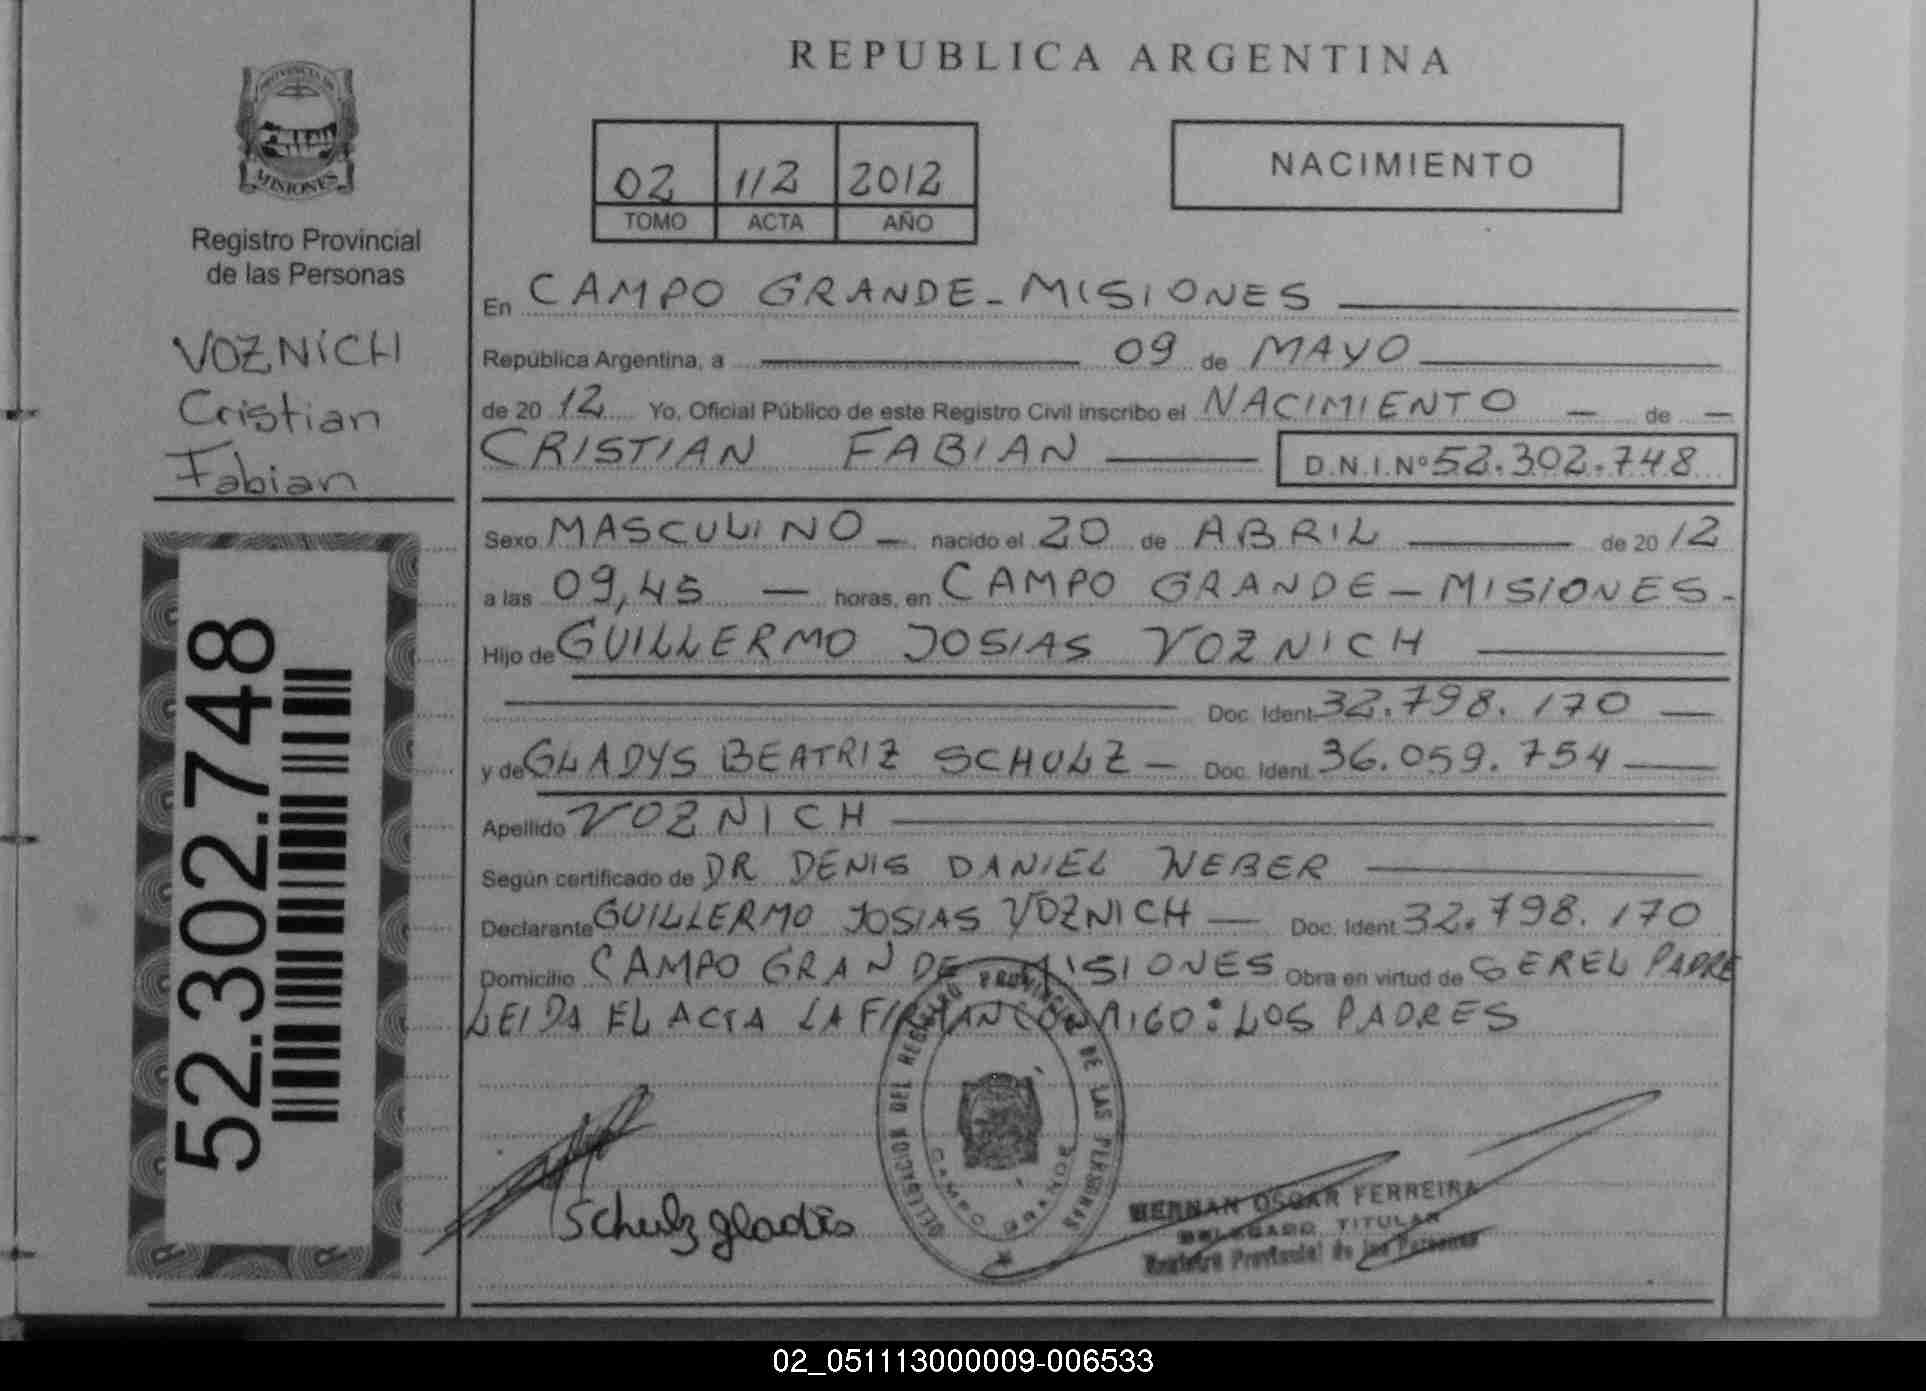 PROVINCIA DE
MISIONES
Registro Provincial
de las Personas
VOZNICH
Cristian
Fabian
52.302.748
REPUBLICA ARGENTINA
02 112 2012
TOMO ACTA AÑO
NACIMIENTO
En CAMPO GRANDE - MISIONES
República Argentina, a 09 de MAYO
de 2012 Yo, Oficial Público de este Registro Civil inscribo el NACIMIENTO — de —
CRISTIAN FABIAN D.N.I.Nº 52.302.748
Sexo MASCULINO — nacido el 20 de ABRIL de 2012
a las 09,45 — horas, en CAMPO GRANDE - MISIONES -
Hijo de GUILLERMO JOSIAS VOZNICH
Doc. Ident. 32.798.170 —
y de GLADYS BEATRIZ SCHULZ — Doc. Ident. 36.059.754 —
Apellido VOZNICH
Según certificado de DR DENIS DANIEL WEBER
Declarante GUILLERMO JOSIAS VOZNICH — Doc. Ident. 32.798.170
Domicilio CAMPO GRANDE - MISIONES Obra en virtud de SER EL PADRE
LEIDA EL ACTA LA FIRMAN CONMIGO: LOS PADRES
DELEGACION DEL REGISTRO PROVINCIAL DE LAS PERSONAS
CAMPO GRANDE
Schulz gladis
HERNAN OSCAR FERREIRA
DELEGADO TITULAR
Registro Provincial de las Personas
02_051113000009-006533